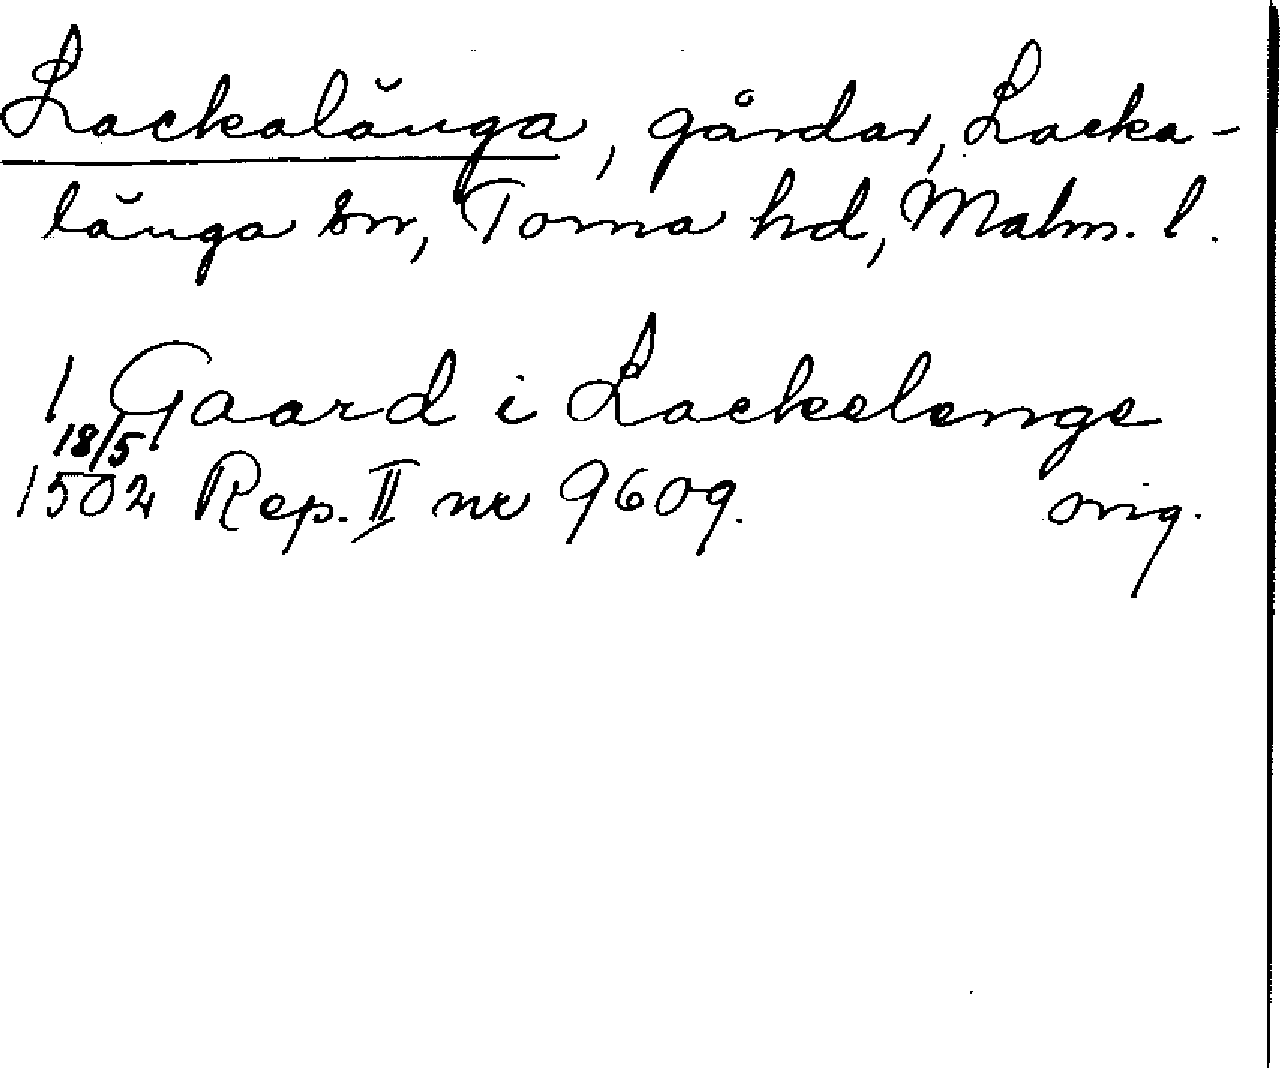 Lackalänga, gårdar, Lacka-
länga sn, Torna hd, Malm. l.
1 Gaard i Lackelenge
18/5
1502 Rep. II nr 9609. orig.